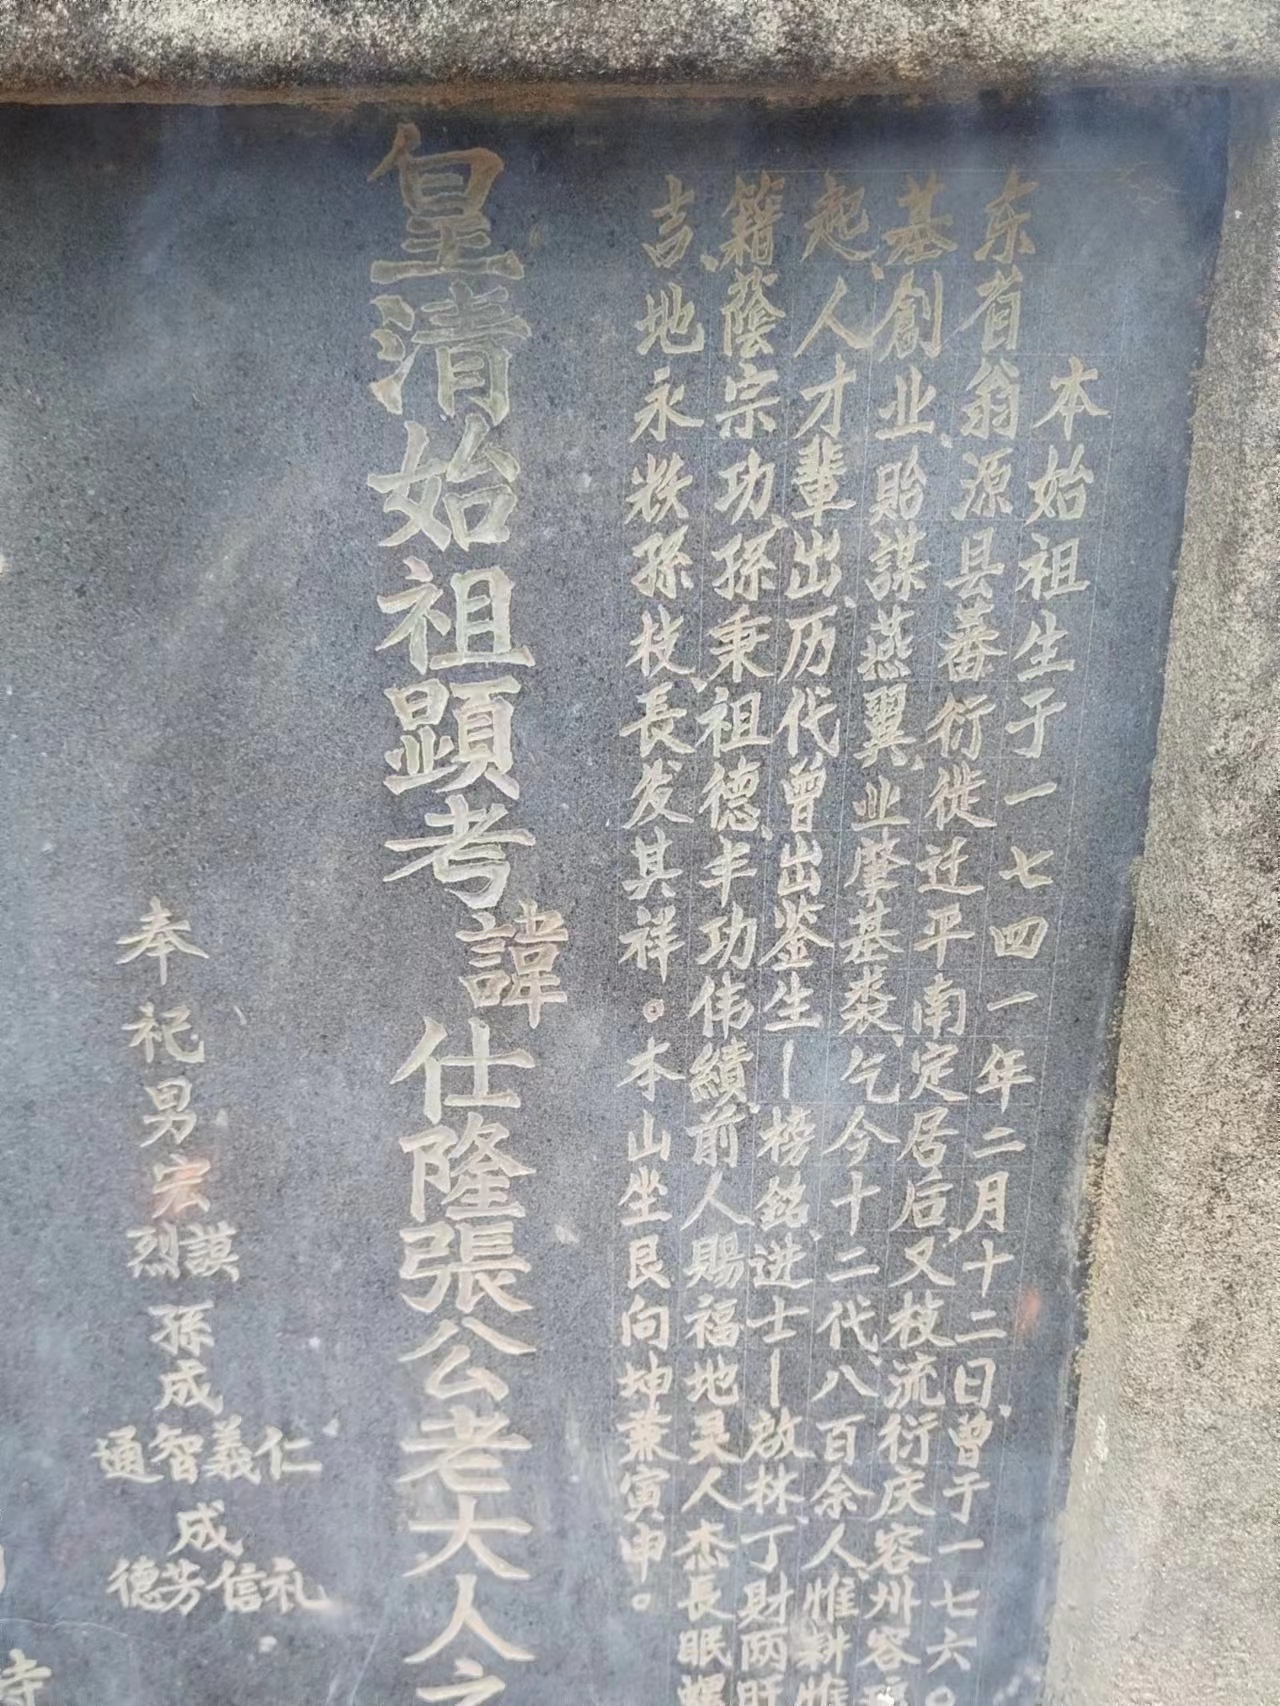 本始祖生于一七四一年二月十二日曾于一七六〇
东省翁源县蕃衍徙迁平南定居后、又枝流衍庆容州容
基、創业、貽謀燕翼、业肇基裘、乞今十二代、八百余人、惟耕惟
起、人才輩出、历代曾出鉴生—榜銘、进士—啟林、丁財两旺
籍蔭宗功、孫秉祖德、丰功伟績、前人賜福地灵人杰長眠
吉地永；孫枝長发其祥。本山坐艮向坤兼寅申。
皇清始祖顯考諱仕隆張公老大人之
奉祀男宏謨烈孫成仁義智通成礼信芳德
寺